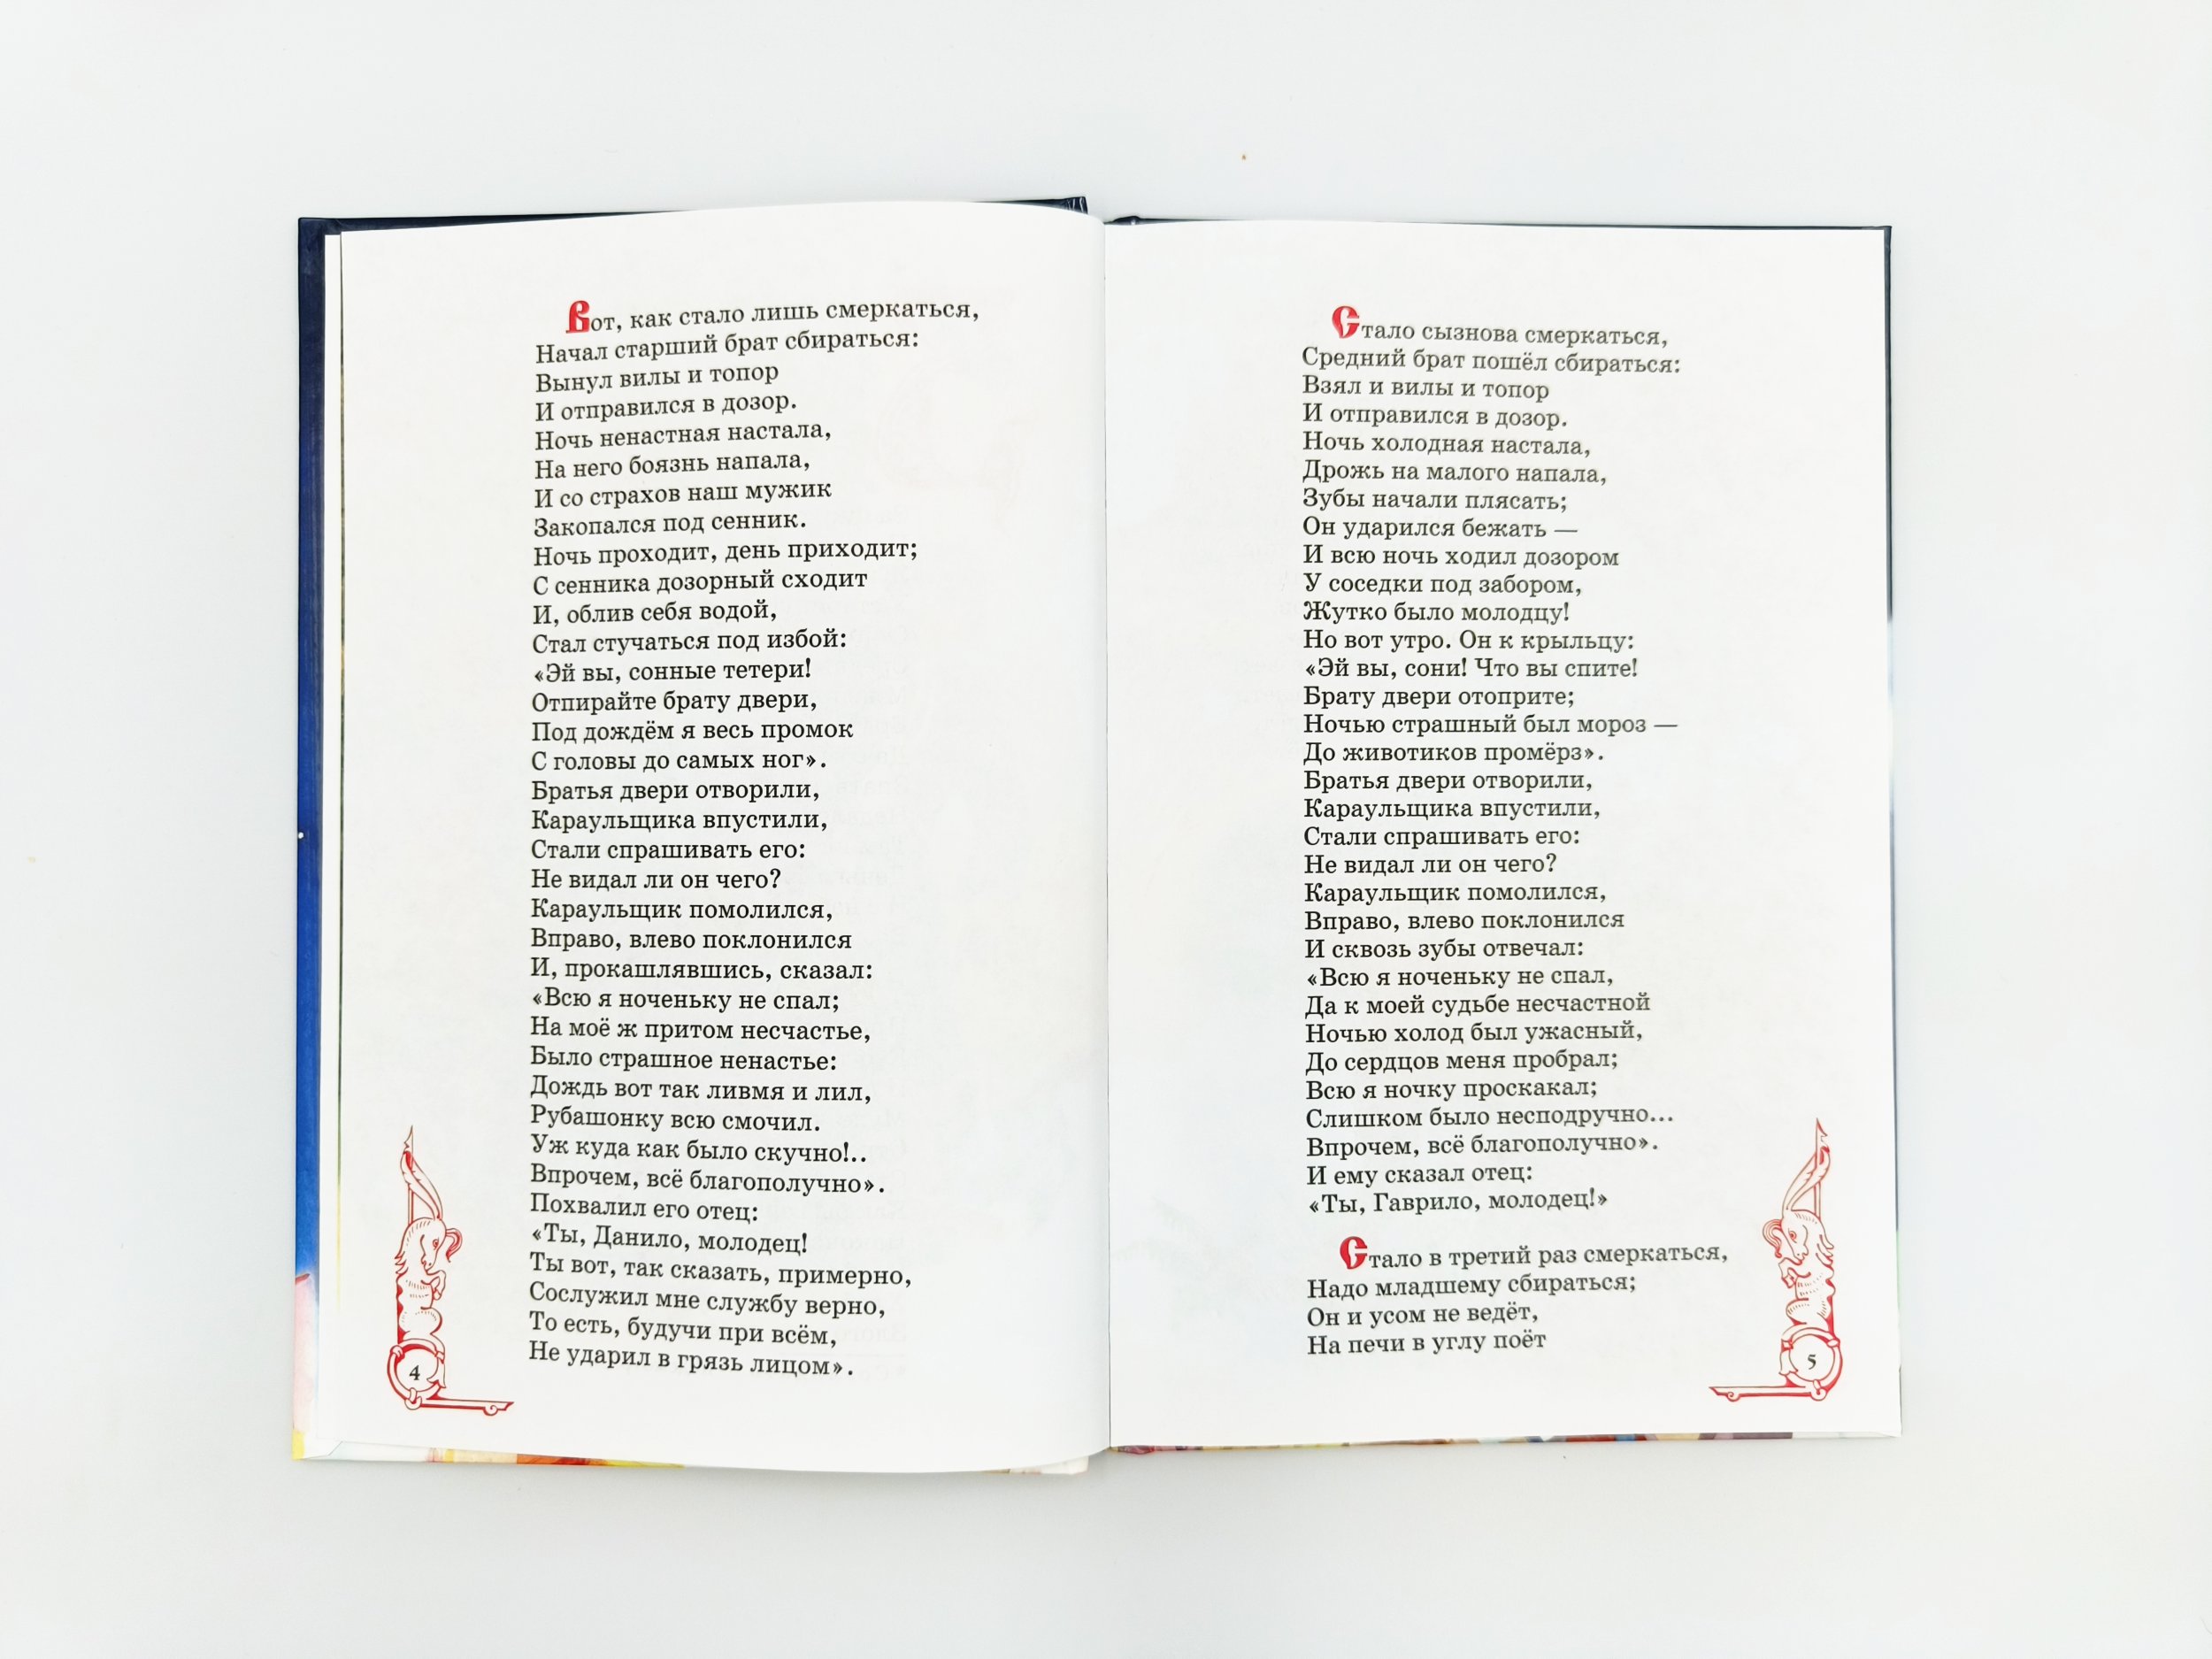 Вот, как стало лишь смеркаться,
Начал старший брат сбираться:
Вынул вилы и топор
И отправился в дозор.
Ночь ненастная настала,
На него боязнь напала,
И со страхов наш мужик
Закопался под сенник.
Ночь проходит, день приходит;
С сенника дозорный сходит
И, облив себя водой,
Стал стучаться под избой:
«Эй вы, сонные тетери!
Отпирайте брату двери,
Под дождём я весь промок
С головы до самых ног».
Братья двери отворили,
Караульщика впустили,
Стали спрашивать его:
Не видал ли он чего?
Караульщик помолился,
Вправо, влево поклонился
И, прокашлявшись, сказал:
«Всю я ноченьку не спал;
На моё ж притом несчастье,
Было страшное ненастье:
Дождь вот так ливмя и лил,
Рубашонку всю смочил.
Уж куда как было скучно!..
Впрочем, всё благополучно».
Похвалил его отец:
«Ты, Данило, молодец!
Ты вот, так сказать, примерно,
Сослужил мне службу верно,
То есть, будучи при всём,
Не ударил в грязь лицом».
4
Стало сызнова смеркаться,
Средний брат пошёл сбираться:
Взял и вилы и топор
И отправился в дозор.
Ночь холодная настала,
Дрожь на малого напала,
Зубы начали плясать;
Он ударился бежать —
И всю ночь ходил дозором
У соседки под забором,
Жутко было молодцу!
Но вот утро. Он к крыльцу:
«Эй вы, сони! Что вы спите!
Брату двери отоприте;
Ночью страшный был мороз —
До животиков промёрз».
Братья двери отворили,
Караульщика впустили,
Стали спрашивать его:
Не видал ли он чего?
Караульщик помолился,
Вправо, влево поклонился
И сквозь зубы отвечал:
«Всю я ноченьку не спал,
Да к моей судьбе несчастной
Ночью холод был ужасный,
До сердцов меня пробрал;
Всю я ночку проскакал;
Слишком было несподручно...
Впрочем, всё благополучно».
И ему сказал отец:
«Ты, Гаврило, молодец!»
Стало в третий раз смеркаться,
Надо младшему сбираться;
Он и усом не ведёт,
На печи в углу поёт
5